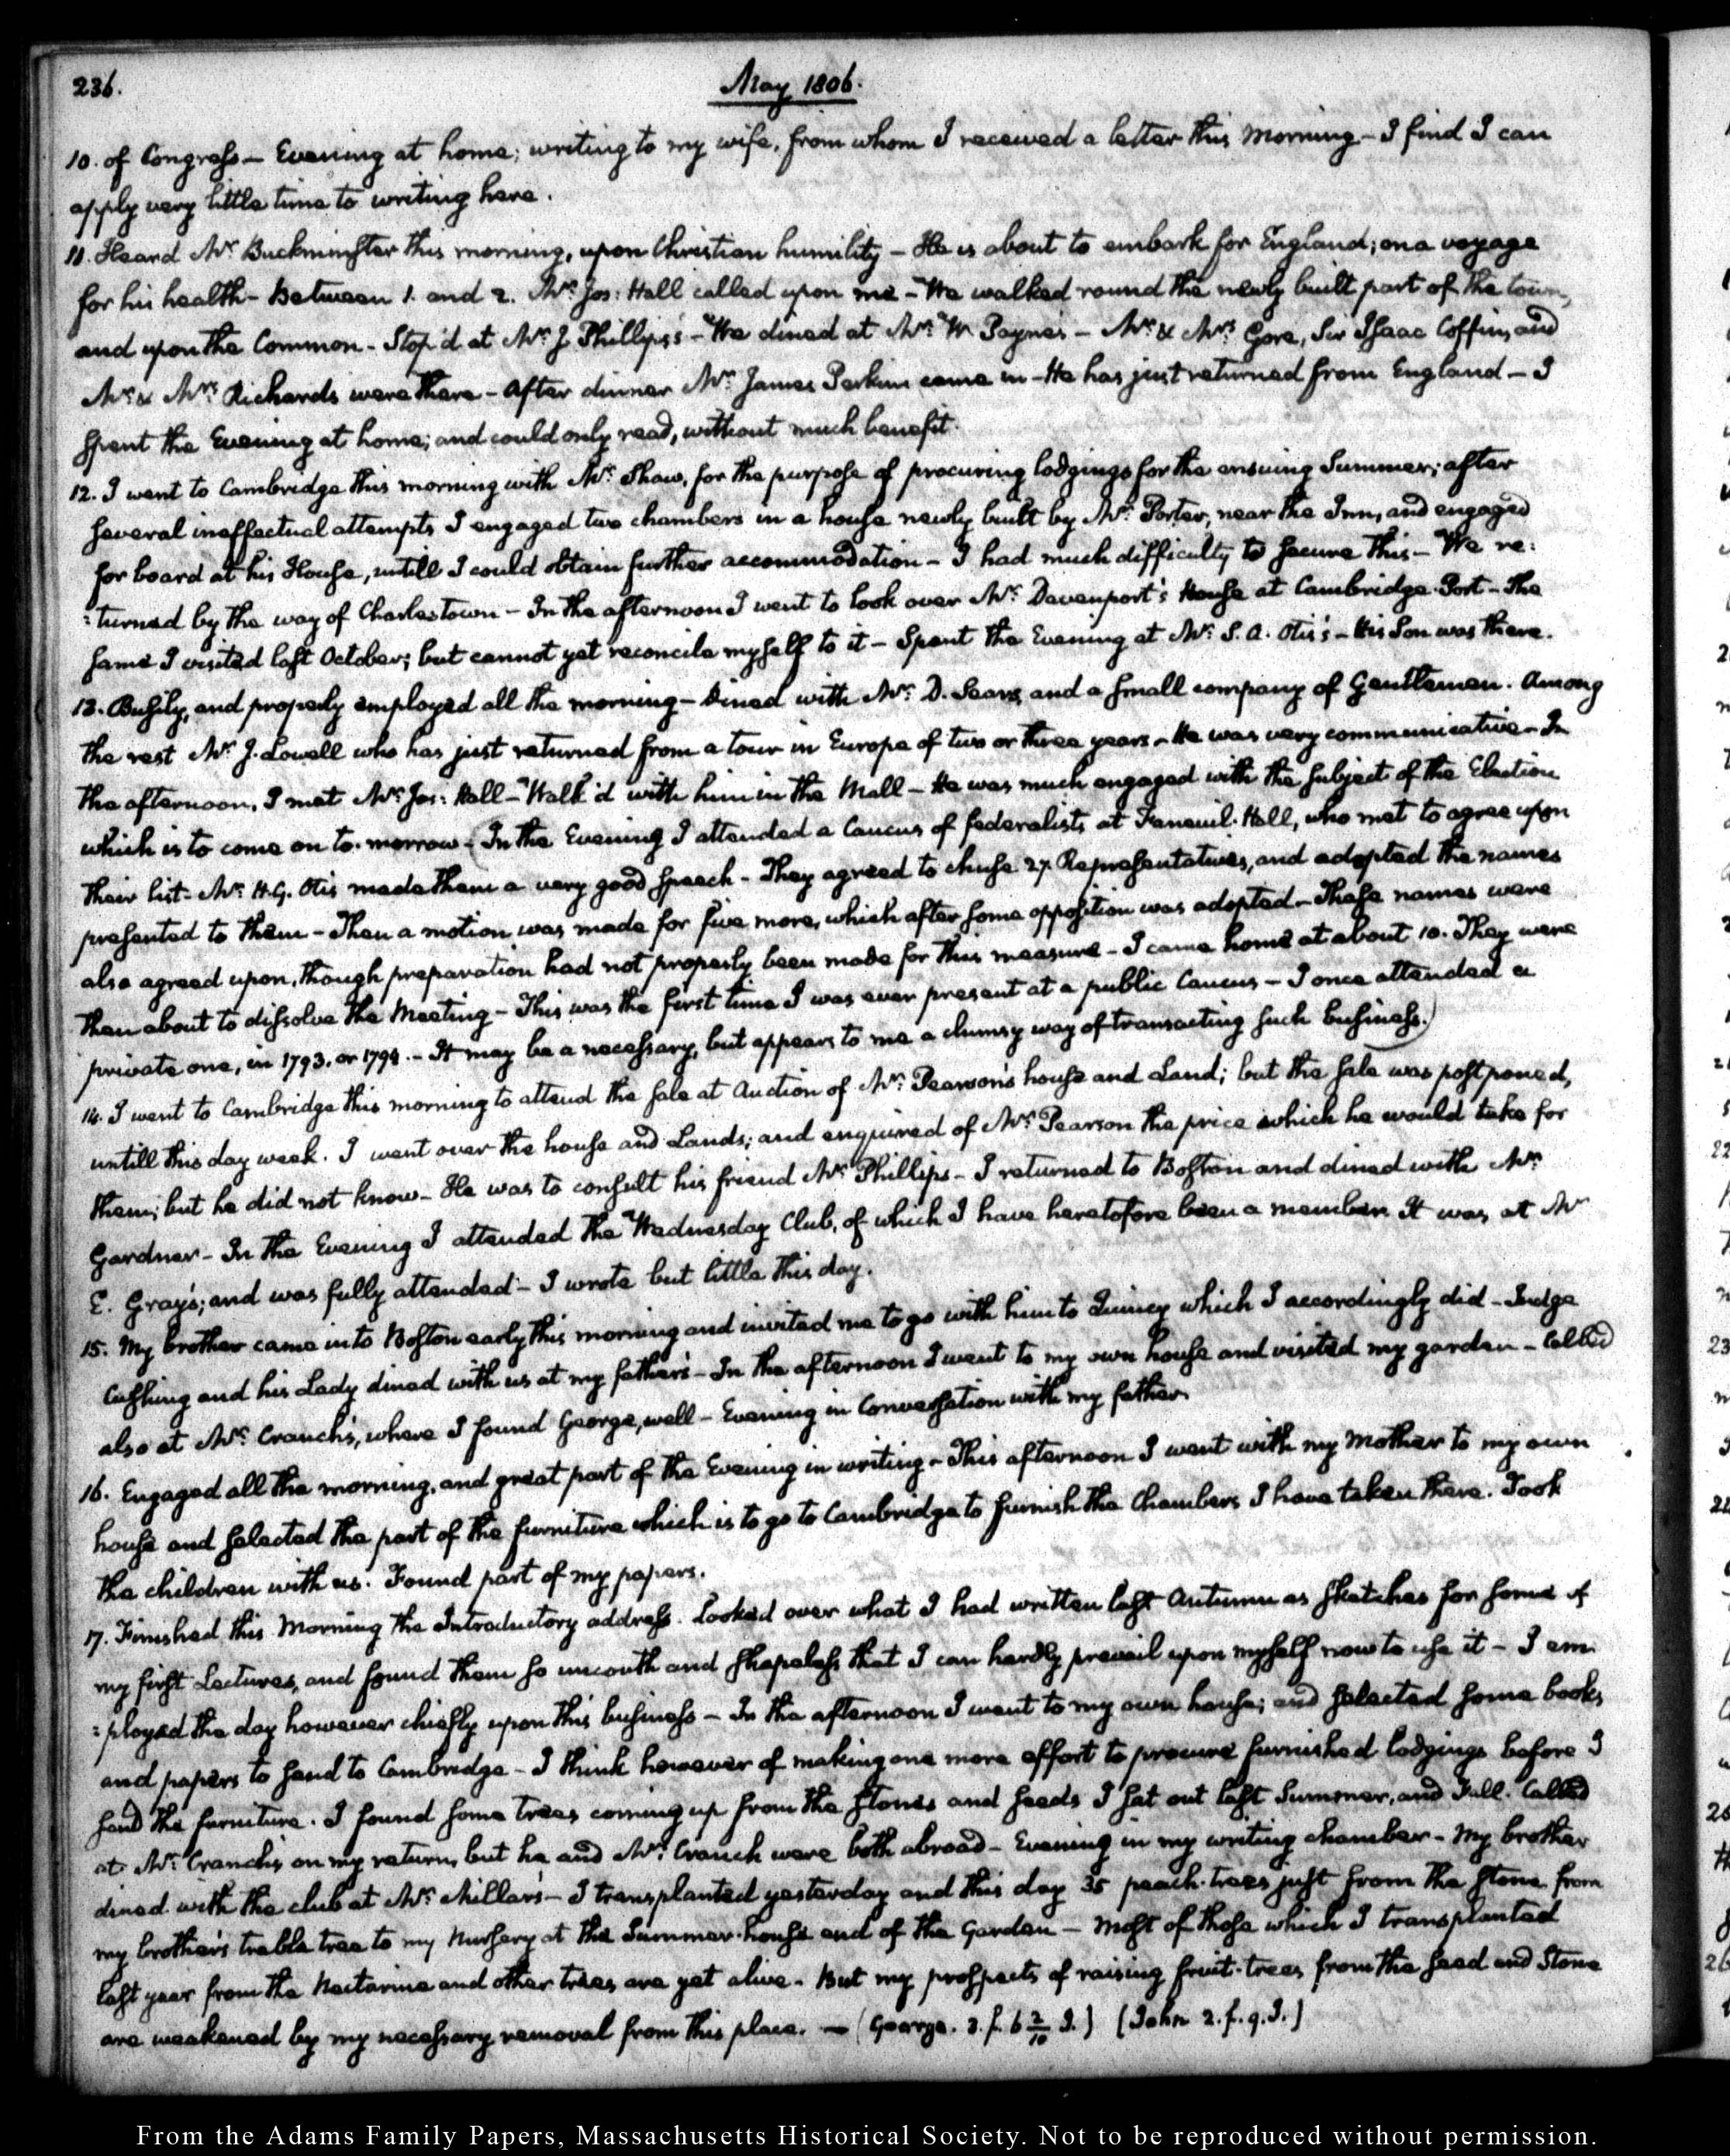 236.
May 1806.
10. of Congress – Evening at home; writing to my wife, from whom I received a letter this Morning – I find I can
apply very little time to writing here.
11. Heard Mr. Buckminster this morning, upon Christian humility – He is about to embark for England; on a voyage
for his health – Between 1. and 2. Mr. Jos: Hall called upon me – We walked round the newly built part of the town,
and upon the Common – Stop'd at Mr. J. Phillips's – We dined at Mr. W. Payne's – Mr. & Mrs. Gore, Sir Isaac Coffin, and
Mr. & Mrs. Richards were there – After dinner Mr. James Perkins came in – He has just returned from England – I
spent the Evening at home; and could only read, without much benefit.
12. I went to Cambridge this morning with Mr. Shaw, for the purpose of procuring lodgings for the ensuing Summer; after
several ineffectual attempts I engaged two chambers in a house newly built by Mr. Porter, near the Inn, and engaged
for board at his House, untill I could obtain further accommodation – I had much difficulty to secure this – We re:
:turned by the way of Charlestown – In the afternoon I went to look over Mr. Davenport's House at Cambridge-Port – The
same I visited last October; but cannot yet reconcile myself to it – Spent the Evening at Mr. S. A. Otis's – His Son was there.
13. Busily, and properly employed all the morning – Dined with Mr. D. Sears, and a small company of Gentlemen. Among
the rest Mr. J. Lowell who has just returned from a tour in Europe of two or three years – He was very communicative – In
the afternoon, I met Mr. Jos: Hall – Walk'd with him in the Mall – He was much engaged with the subject of the Election
which is to come on to-morrow – (In the Evening I attended a Caucus of federalists at Faneuil-Hall, who met to agree upon
their list – Mr. H. G. Otis made them a very good speech – They agreed to chuse 27. Representatives, and adopted the names
presented to them – Then a motion was made for five more, which after some opposition was adopted – These names were
also agreed upon, though preparation had not properly been made for this measure – I came home at about 10. They were
then about to dissolve the Meeting – This was the first time I was ever present at a public Caucus – I once attended a
private one, in 1793. or 1794. – It may be a necessary, but appears to me a clumsy way of transacting such business.)
14. I went to Cambridge this morning to attend the sale at Auction of Mr. Pearson's house and Land; but the sale was postponed,
untill this day week. I went over the house and Lands; and enquired of Mr. Pearson the price which he would take for
them; but he did not know – He was to consult his friend Mr. Phillips – I returned to Boston and dined with Mr.
Gardner – In the Evening I attended the Wednesday Club, of which I have heretofore been a member. It was at Mr.
E. Gray's; and was fully attended – I wrote but little this day.
15. My brother came into Boston early this morning and invited me to go with him to Quincy which I accordingly did – Judge
Cushing and his Lady dined with us at my father's – In the afternoon I went to my own house and visited my garden – Called
also at Mr. Cranch's, where I found George, well – Evening in Conversation with my father.
16. Engaged all the morning, and great part of the Evening in writing – This afternoon I went with my Mother to my own
house and selected the part of the furniture which is to go to Cambridge to furnish the Chambers I have taken there. Took
the children with us. Found part of my papers.
17. Finished this Morning the Introductory address. Looked over what I had written last Autumn as sketches for some of
my first Lectures, and found them so uncouth and shapeless that I can hardly prevail upon myself now to use it – I em:
:ployed the day however chiefly upon this business – In the afternoon I went to my own house; and selected some books
and papers to send to Cambridge – I think however of making one more effort to procure furnished lodgings before I
send the furniture. I found some trees coming up from the stones and seeds I set out last Summer, and Fall. Called
at Mr. Cranch's on my return, but he and Mrs. Cranch were both abroad – Evening in my writing chamber – My brother
dined with the club at Mr. Miller's – I transplanted yesterday and this day 35 peach-trees just from the stone from
my brother's treble tree to my Nursery at the Summer-house end of the Garden – Most of those which I transplanted
last year from the Nectarine and other trees are yet alive – But my prospects of raising fruit-trees from the seed and Stone
are weakened by my necessary removal from this place. – (George. 3. f. 6 2/10 I.) (John 2. f. 9. I.)
From the Adams Family Papers, Massachusetts Historical Society. Not to be reproduced without permission.